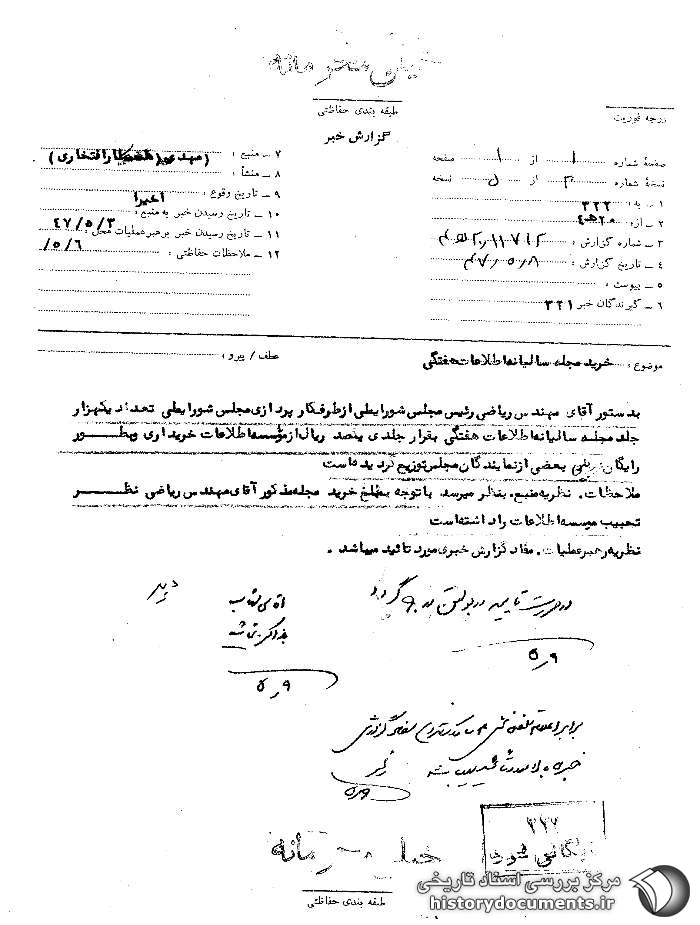 خیلی محرمانه
طبقه بندی حفاظتی
درجه فوریت
گزارش خبر
صفحهٔ شماره ۱ از ۱ صفحه
نسخهٔ شماره ۳ از ۵ نسخه
۱ – به : ۳۲۲
۲ – از : ۲۰ ه ۴
۳ – شماره گزارش :
۴ – تاریخ گزارش : ۴۷/۵/۸
۵ – پیوست :
۶ – گیرندگان خبر ۳۲۱
۷ – منبع : (مهدی) افتخاری)
۸ – منشأ :
۹ – تاریخ وقوع : اخیرا
۱۰ – تاریخ رسیدن خبر به منبع :
۱۱ – تاریخ رسیدن خبر برهبر عملیات محل : ۴۷/۵/۳
۱۲ – ملاحظات حفاظتی : ۵/۶/
موضوع : خرید مجله سالیانه اطلاعات هفتگی
عطف / پیرو :
بدستور آقای مهندس ریاضی رئیس مجلس شورایملی از طرف کارپردازی مجلس شورایملی تعداد یکهزار
جلد مجله سالیانه اطلاعات هفتگی بقرار جلدی پنصد ریال از مؤسسه اطلاعات خریداری و بطور
رایگان بین بعضی از نمایندگان مجلس توزیع گردیده است
ملاحظات . نظریه منبع . بنظر میرسد با توجه بمبلغ خرید مجله مذکور آقای مهندس ریاضی نظر
تحبیب موسسه اطلاعات را داشته است
نظریه رهبر عملیات . مفاد گزارش خبری مورد تائید میباشد .
در صورت تایید در بولتن درج گردد
۵/۹
آقای
مذاکره
۵/۹
برابر
خبره
۵/۹
۳۲۶
بایگانی شود
خیلی محرمانه
طبقه بندی حفاظتی
مرکز بررسی اسناد تاریخی
historydocuments.ir